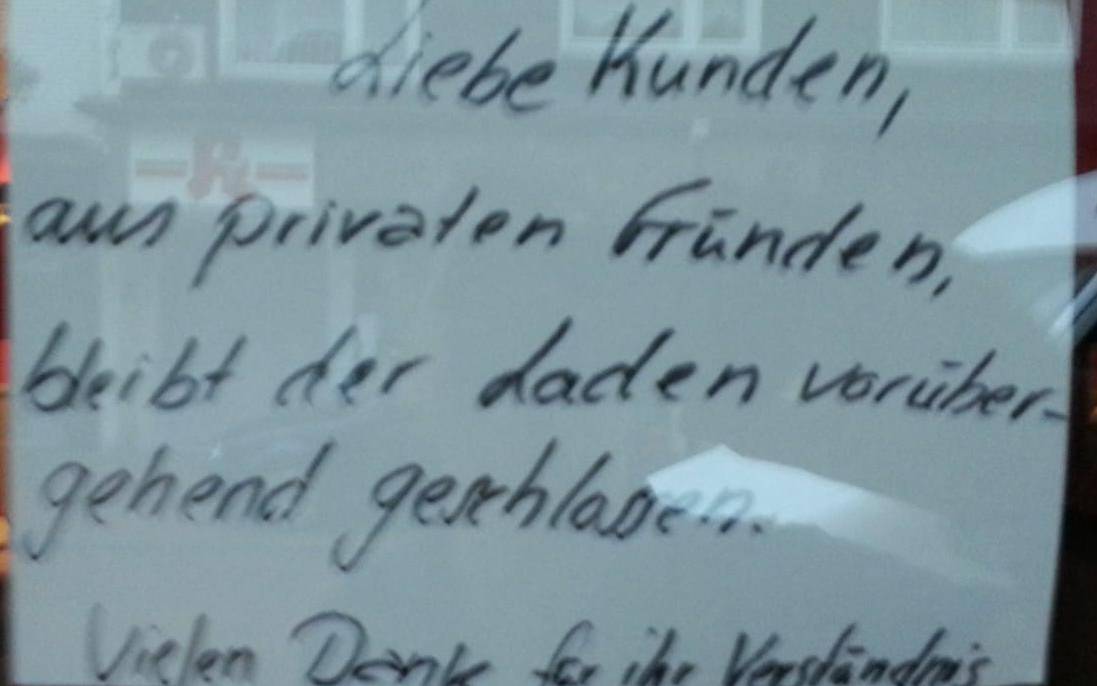 Liebe Kunden,
aus privaten Gründen,
bleibt der Laden vorüber-
gehend geschlossen.
Vielen Dank für ihr Verständnis